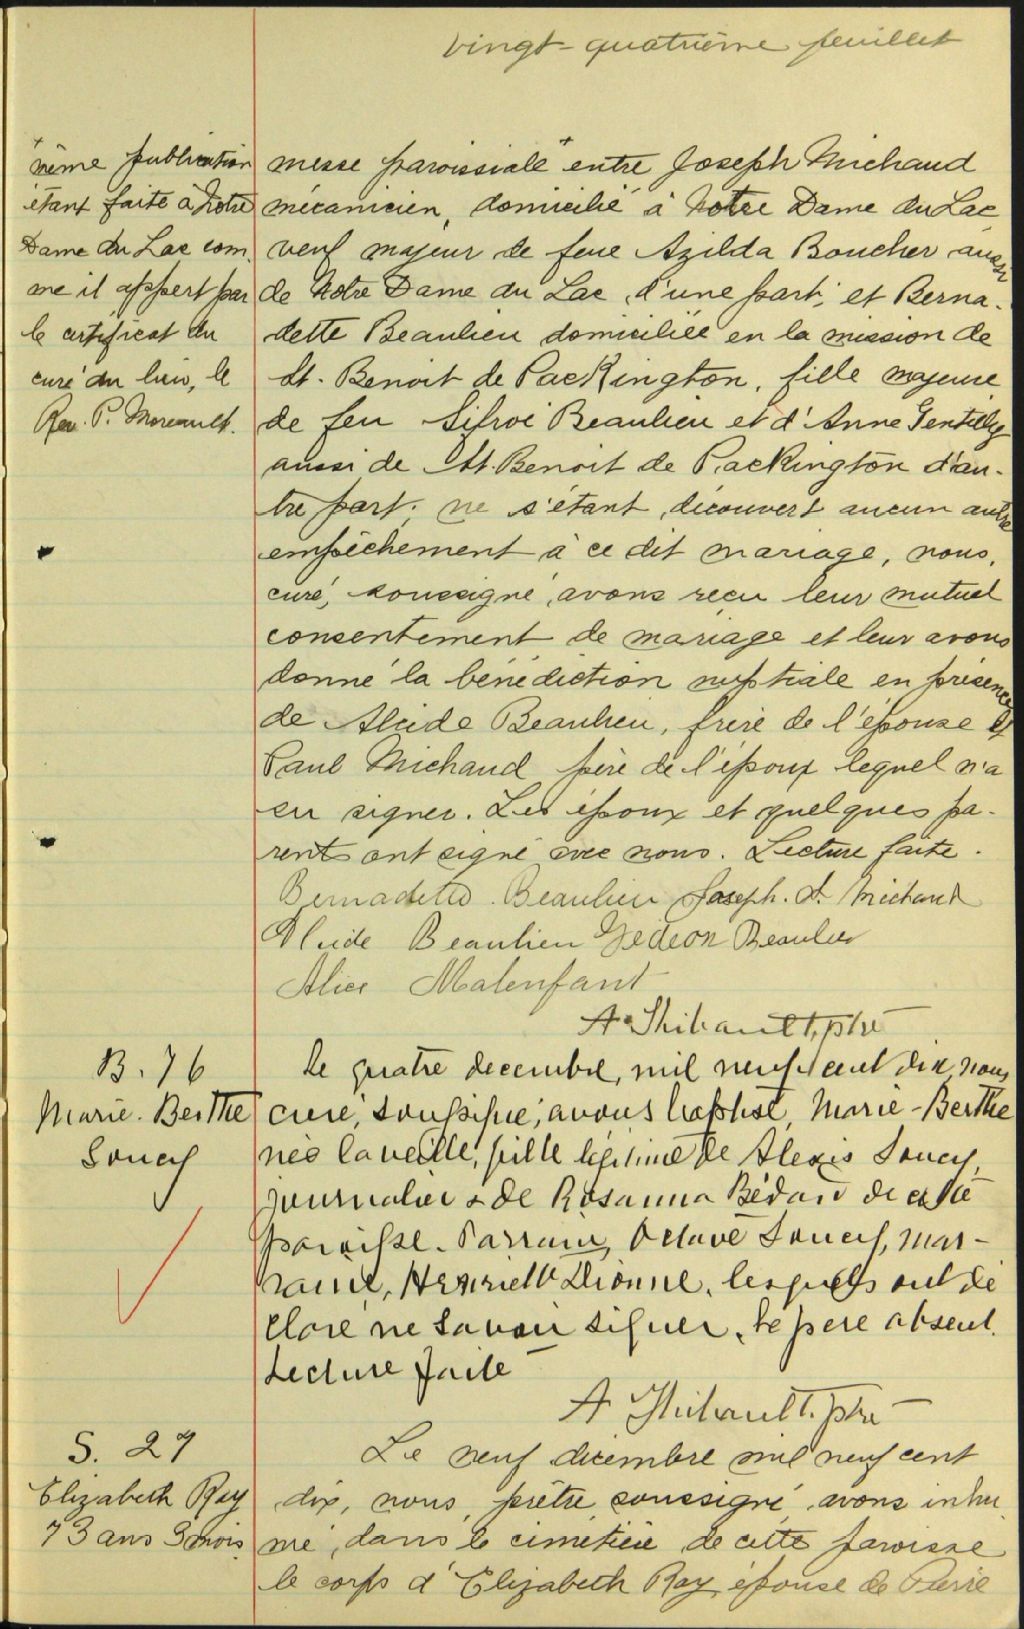 vingt-quatrième feuillet
+
même publication
étant faite à Notre
Dame du Lac com
me il appert par
le certificat du
curé du lieu, le
Rev. P. Moreault.
messe paroissiale + entre Joseph Michaud
mécanicien, domicilié à Notre Dame du Lac
veuf majeur de feue Azilda Boucher aussi
de Notre Dame du Lac, d'une part; et Berna-
dette Beaulieu domiciliée en la mission de
St. Benoit de Packington, fille majeure
de feu Sifroi Beaulieu et d'Anne Gentilly
aussi de St. Benoit de Packington d'au-
tre part; ne s'étant découvert aucun autre
empêchement à ce dit mariage, nous,
curé, soussigné, avons reçu leur mutuel
consentement de mariage et leur avons
donné la bénédiction nuptiale en présence
de Alcide Beaulieu, frère de l'épouse et
Paul Michaud père de l'époux lequel n'a
su signer. Les époux et quelques pa-
rents ont signé avec nous. Lecture faite.
Bernadette Beaulieu Joseph. Michaud
Alcide Beaulieu Gedeon Beaulieu
Alice Malenfant
A. Thibault, ptre
B. 76
Marie-Berthe
Soucy
Le quatre decembre, mil neuf cent dix, nous
curé, soussigné, avons baptisé, Marie-Berthe
née la veille, fille légitime de Alexis Soucy,
journalier & de Rosanna Bédard de cette
paroisse. Parrain, Octave Soucy, mar-
raine, Henriette Dionne, lesquels ont dé
claré ne savoir signer, le père absent.
Lecture faite
A Thibault, ptre
S. 27
Elizabeth Roy
73 ans 3 mois
Le neuf décembre mil neuf cent
dix, nous, prêtre soussigné, avons inhu
mé, dans le cimetière de cette paroisse
le corps d'Elizabeth Roy, épouse de Pierre